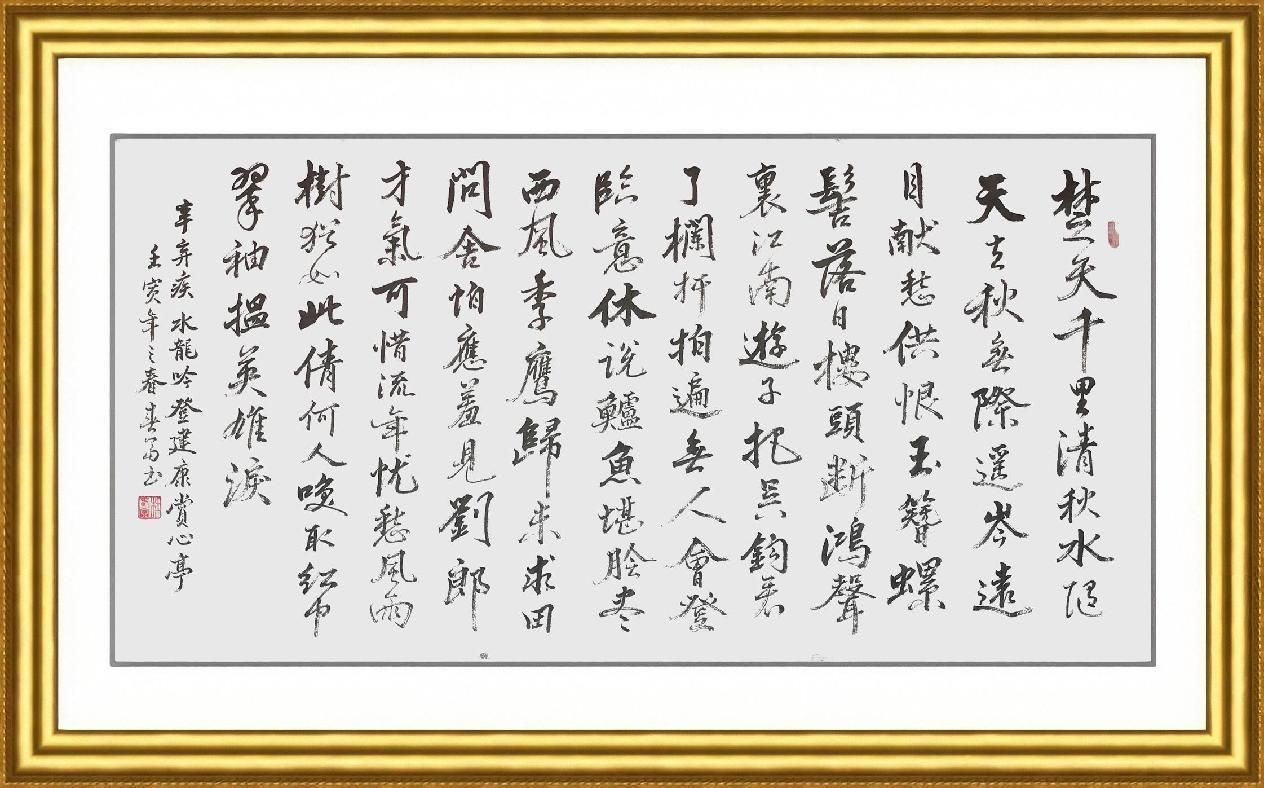 楚天千里清秋水随
天去秋無際遥岑遠
目献愁供恨玉簪螺
髻落日樓頭断鴻聲
裏江南遊子把吴鈎看
了欄杆拍遍無人會登
臨意休说鱸魚堪脍尽
西風季鷹歸未求田
問舍怕應羞見劉郎
才氣可惜流年忧愁風雨
樹猶如此倩何人唤取红巾
翠袖揾英雄淚
辛弃疾水龍吟登建康賞心亭
壬寅年之春